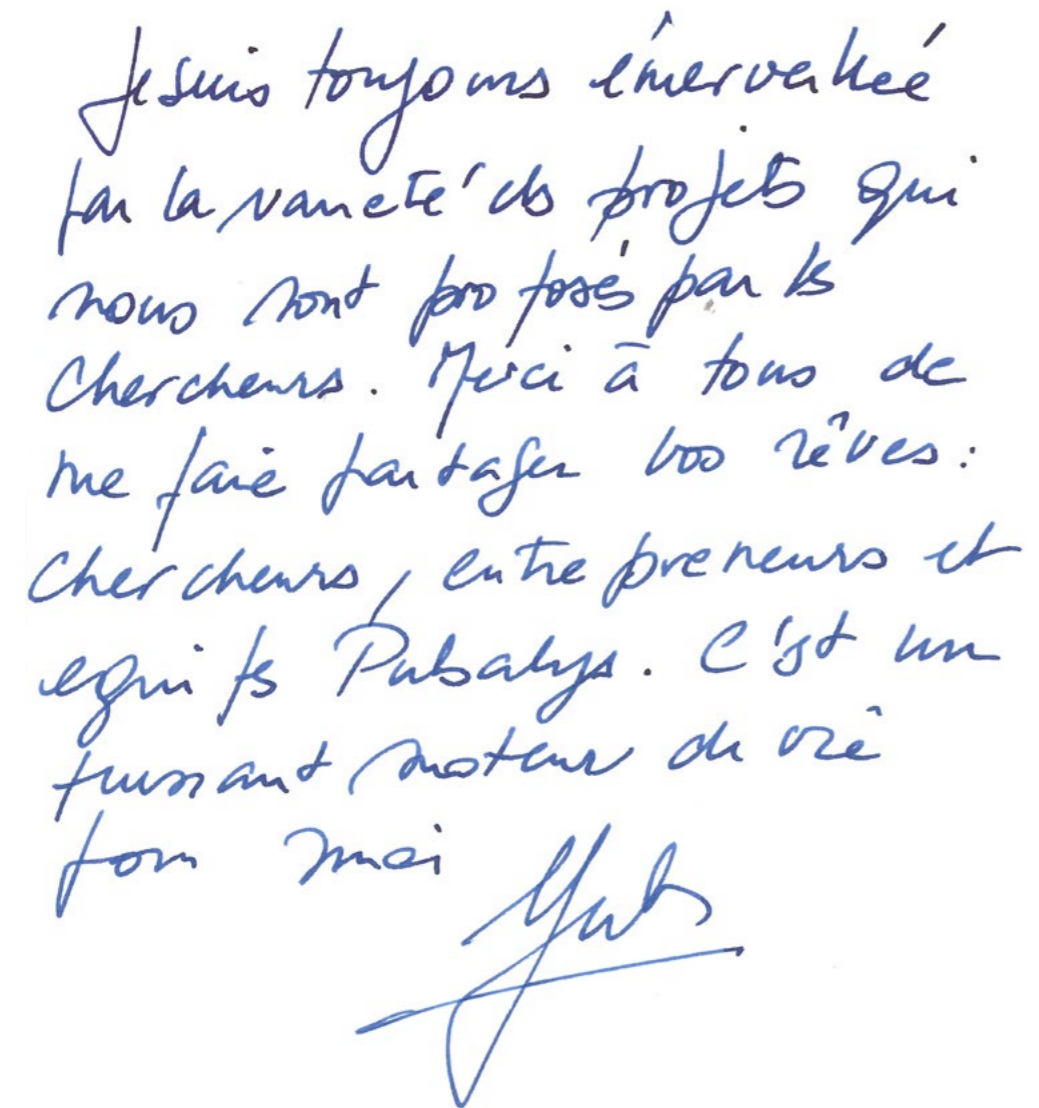 Je suis toujours émerveillée
par la variété des projets qui
nous sont proposés par les
chercheurs. Merci à tous de
me faire partager vos rêves :
chercheurs, entrepreneurs et
equipes Pulsalys. C'est un
puissant moteur de vie
pour moi